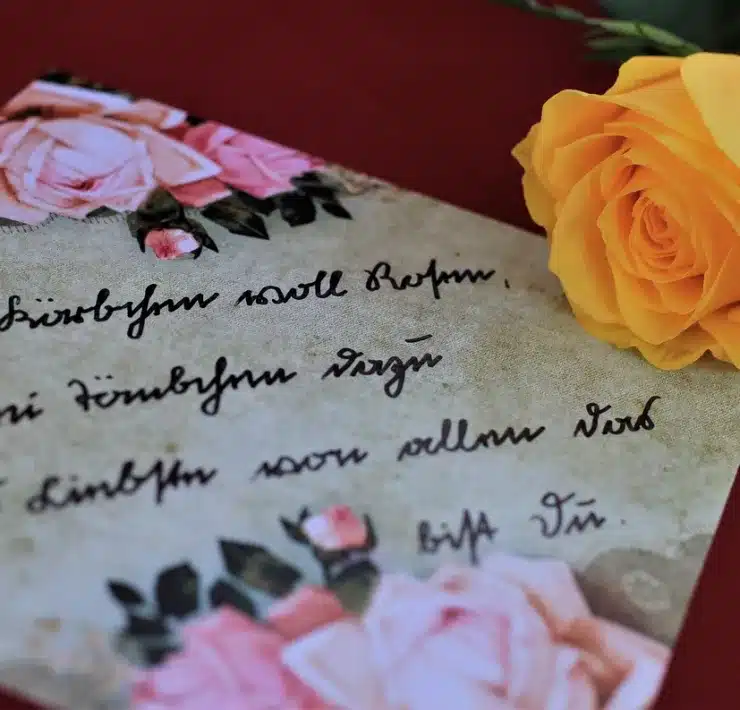 Körbchen voll Rosen,
Täubchen dazu
Liebste von allen das
bist Du.